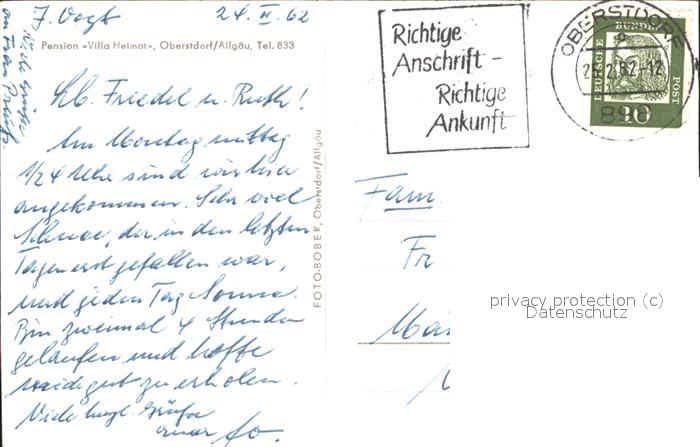 J. Vogt 24. II. 62
Pension »Villa Heimat«, Oberstdorf/Allgäu, Tel. 833
Viele Grüße
an Frau
Lb. Friedel u. Ruth!
Am Montag mittag
1/2 4 Uhr sind wir hier
angekommen. Sehr viel
Schnee, der in den letzten
Tagen erst gefallen war,
und jeden Tag Sonne.
Bin zweimal 4 Stunden
gelaufen und hoffe
gut zu erholen.
Viele herzl. Grüße
FOTO-BOBEK, Oberstdorf/Allgäu
Richtige
Anschrift –
Richtige
Ankunft
OBERSTDORF
DEUTSCHE BUNDESPOST
10
Fam.
Fr
Mai
privacy protection (c)
Datenschutz